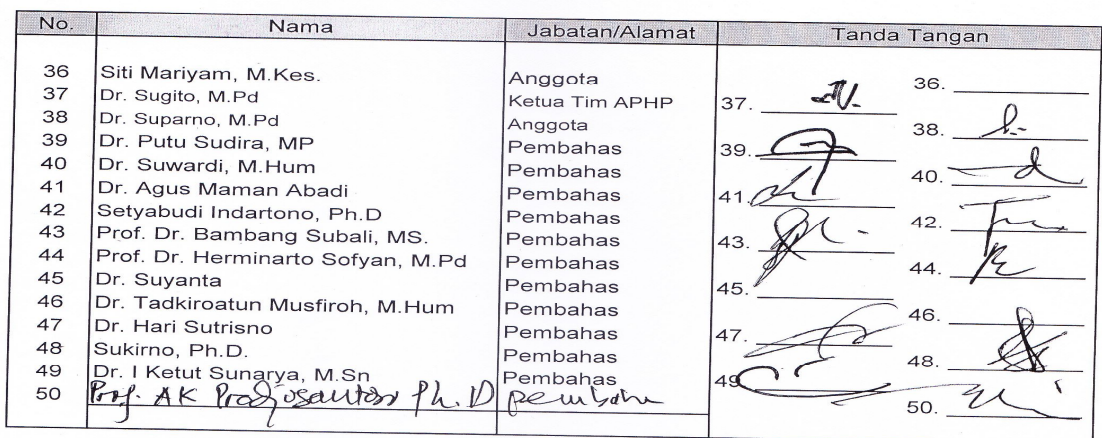 No. Nama Jabatan/Alamat Tanda Tangan
36 Siti Mariyam, M.Kes. Anggota 36.
37 Dr. Sugito, M.Pd Ketua Tim APHP 37.
38 Dr. Suparno, M.Pd Anggota 38.
39 Dr. Putu Sudira, MP Pembahas 39.
40 Dr. Suwardi, M.Hum Pembahas 40.
41 Dr. Agus Maman Abadi Pembahas 41.
42 Setyabudi Indartono, Ph.D Pembahas 42.
43 Prof. Dr. Bambang Subali, MS. Pembahas 43.
44 Prof. Dr. Herminarto Sofyan, M.Pd Pembahas 44.
45 Dr. Suyanta Pembahas 45.
46 Dr. Tadkiroatun Musfiroh, M.Hum Pembahas 46.
47 Dr. Hari Sutrisno Pembahas 47.
48 Sukirno, Ph.D. Pembahas 48.
49 Dr. I Ketut Sunarya, M.Sn Pembahas 49
50 Prof. AK Ph.D 50.